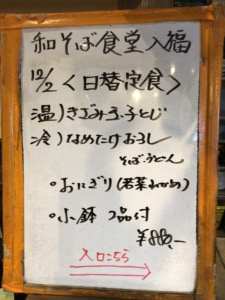 和そば食堂入福
12/2 〈日替定食〉
温)きざみ玉子とじ
冷)なめたけおろし
そば・うどん
。おにぎり(若菜わかめ)
。小鉢 2品付
入口こちら